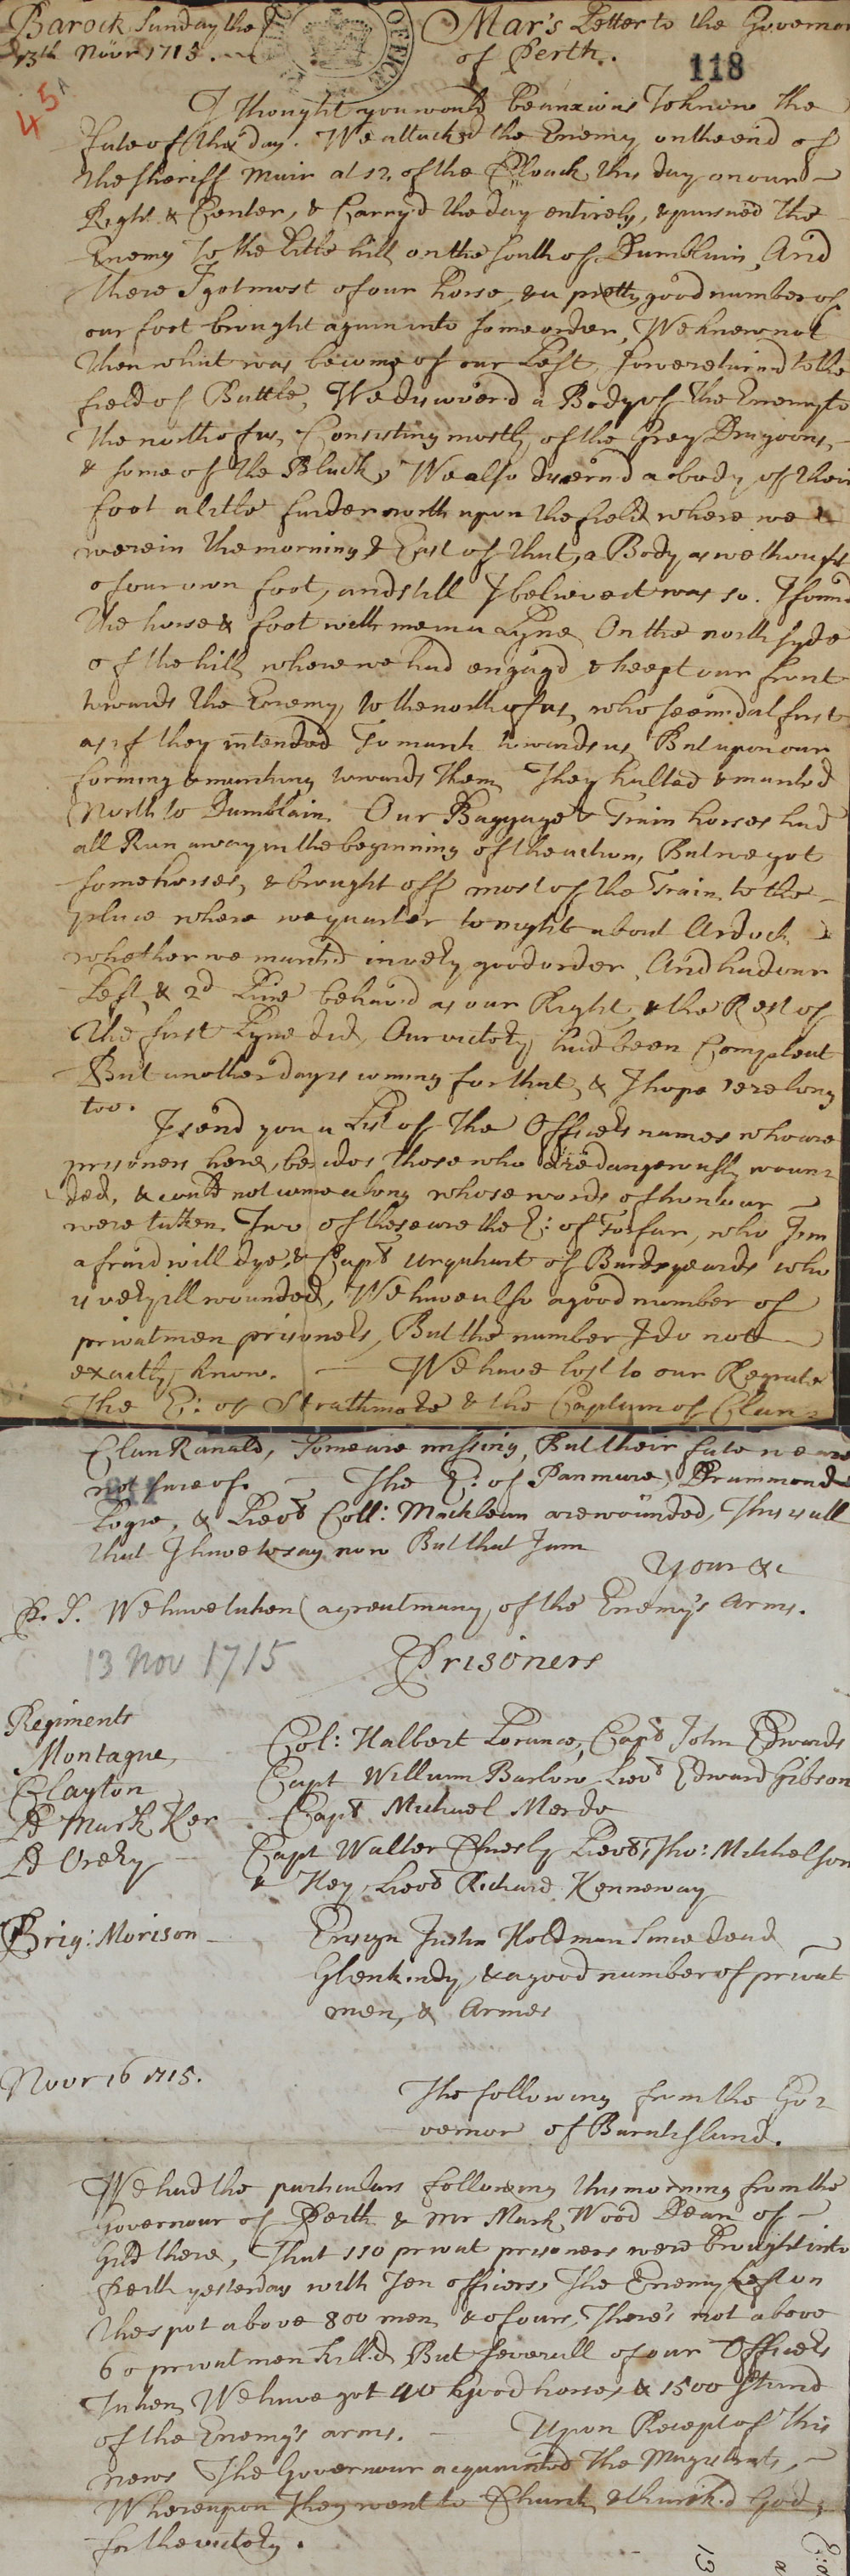 Barock Sunday the
13th Novr 1715.
Mar's Letter to the Governor
of Perth.
118
45
OFFICE
I thought you would be anxious To know the
fate of this day. We attackd the Enemy on the end of
the Sheriff Muir at 12, of the Cloack this day on our
Right & Center, & Carry'd the day entirely, & pursued the
Enemy To the little hill on the South of Dumblain, And
there I got most of our horse, & a pretty good number of
our foot brought again into some order, We knew not
then what was become of our Left, so we returnd to the
field of Battle, We discover'd a Body of the Enemy to
the north of us, Consisting mostly of the Grey Dragoons,
& some of the Black, We also discern'd a body of their
foot a litle furder north upon the field where we
were in the morning & East of that, a Body as we thought
of our own foot, and still I believe it was so. I found
the horse & foot with me in a Lyne On the north syde
of the hill where we had engag'd & keept our front
towards the Enemy, to the north of us, who seem'd at first
as if they intended To march towards us, But upon our
forming & marching towards them They halted & marched
North to Dumblain. Our Baggage & Train horses had
all Run away in the beginning of the action, But we got
some horses, & brought off most of the Train to the
place where we quarter to night about Ardoch
whether we march'd in very good order, And had our
Left & 2d Line behav'd as our Right, & the Rest of
the first Lyne did, Our victory had been Compleat
But another day is coming for that, & I hope 'ere long
too.
I send you a List of the Officers names who are
prisoners here, besides those who are dangerously woun=
ded, & could not come along whose words of honour
were taken. Two of these are the E: of Forfar, who I'm
afraid will dye, & Capt Urquhart of Burdsyeards who
is very ill wounded, We have also a good number of
privat men prisoners, But the number I do not
exactly know. We have lost to our Regrate
The E: of Strathmore & the Captain of Clan=
Clan Ranald, Some are missing, But their fate we are
not sure of. The E: of Panmure, Drummond
Logie, & Lievt Coll: Macklean are wounded, This is all
that I have to say now But that I am
Your &c
P. S. We have taken a great many of the Enemy's Arms.
13 Nov 1715
Prisoners
Regiments
Montague Col: Halbert Lorance, Capt John Edwards
Clayton Capt William Barlow Lievt Edward Gibson
Ld Mark Ker Capt Michael Merde
Ld Orery Capt Walter Chiesly Lievts Tho: Mitchelson
& Hay, Lievt Richard Henneway
Brig: Morison Ensign Justin Holdman Since dead
Glenkindy, & a good number of privat
men, & Armes
Novr 16 1715.
The following from the Go=
vernor of Burntisland.
We had the particulars following this morning from the
Governour of Perth & Mr Mark Wood Dean of
Gild there, That 110 privat prisoners were brought into
Perth yesterday with Ten officers, The Enemy Left on
the spot above 800 men, & of ours, There's not above
60 privat men kill'd, But severall of our Officers
Taken, We have got 40 good horses & 1500 Stand
of the Enemy's arms. Upon Recept of this
news The Governour acquainted the Magistrats,
Whereupon They went to Church & thank'd God
for the victory.
13